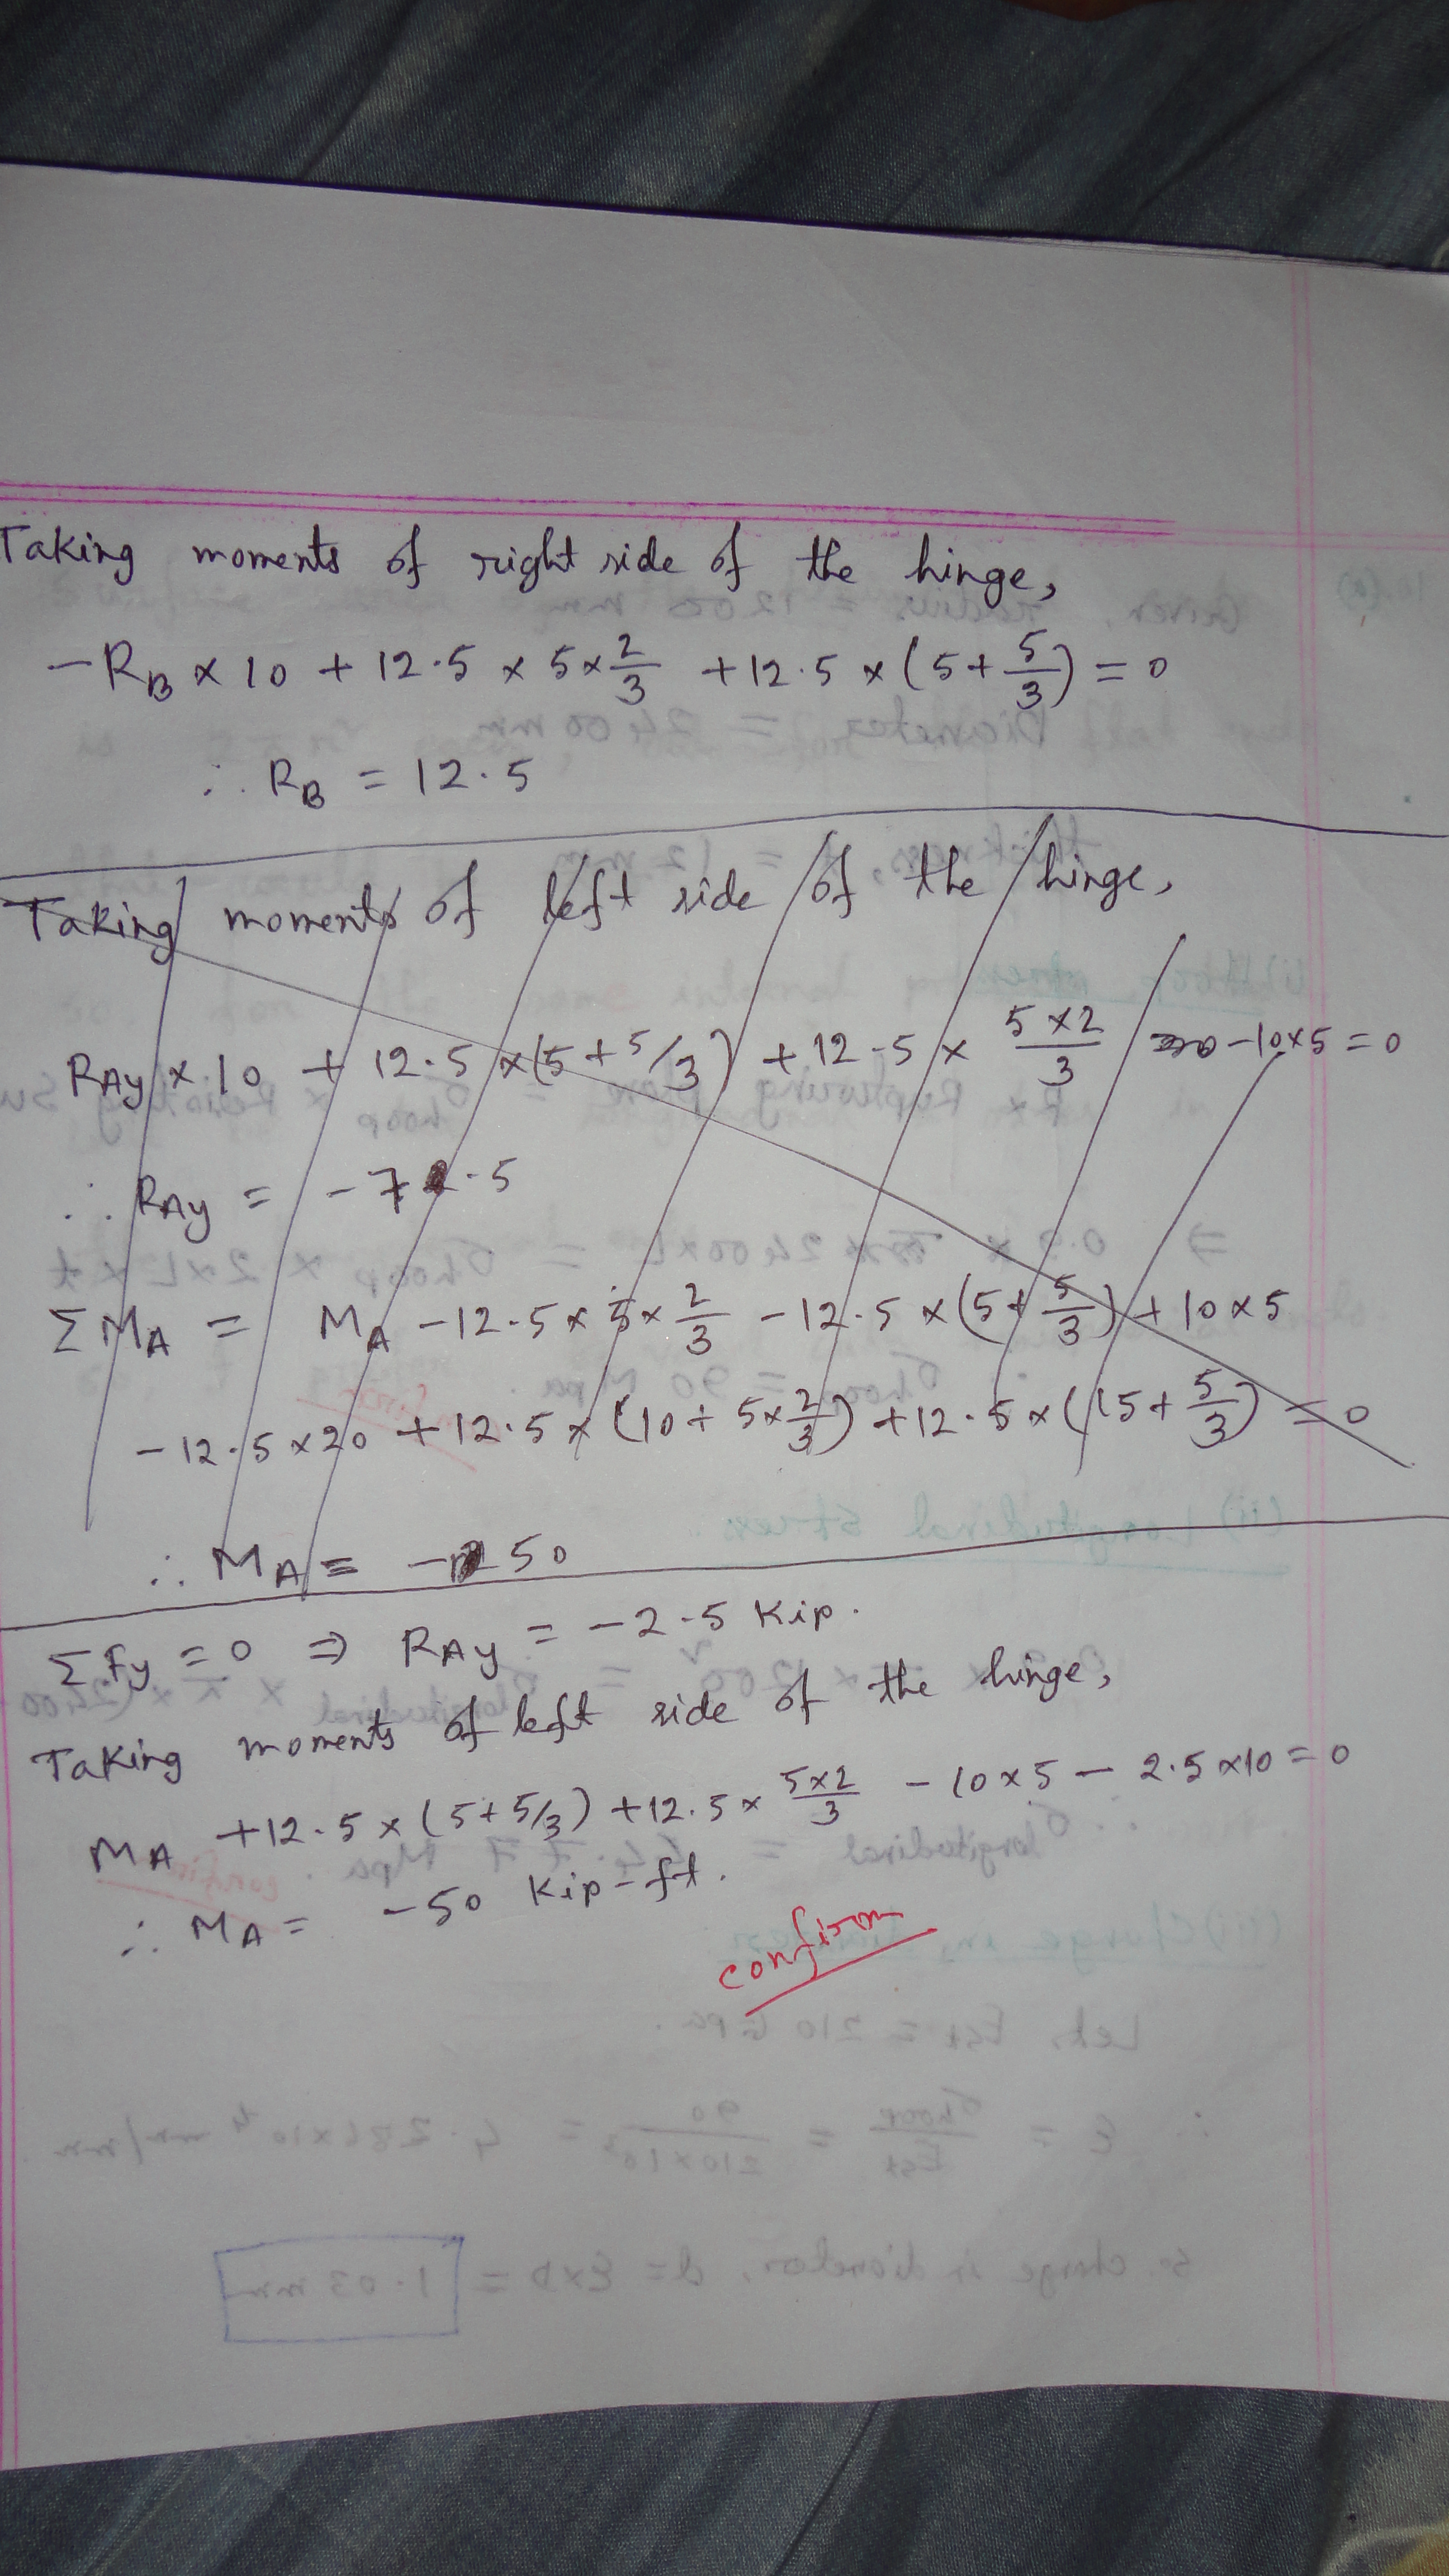 Taking moments of right side of the hinge,
- RB × 10 + 12.5 × 5 × 2/3 + 12.5 × (5 + 5/3) = 0
∴ RB = 12.5
Taking moments of left side of the hinge,
RAy × 10 + 12.5 × (5 + 5/3) + 12.5 × 5×2/3 - 10×5 = 0
∴ RAy = -7.5
ΣMA = MA - 12.5 × 5 × 2/3 - 12.5 × (5 + 5/3) + 10 × 5
- 12.5 × 20 + 12.5 × (10 + 5×2/3) + 12.5 × (15 + 5/3) = 0
∴ MA = -50
ΣFy = 0 ⇒ RAy = -2.5 Kip.
Taking moments of left side of the hinge,
MA + 12.5 × (5 + 5/3) + 12.5 × 5×2/3 - 10 × 5 - 2.5 × 10 = 0
∴ MA = -50 Kip-ft.
confirm